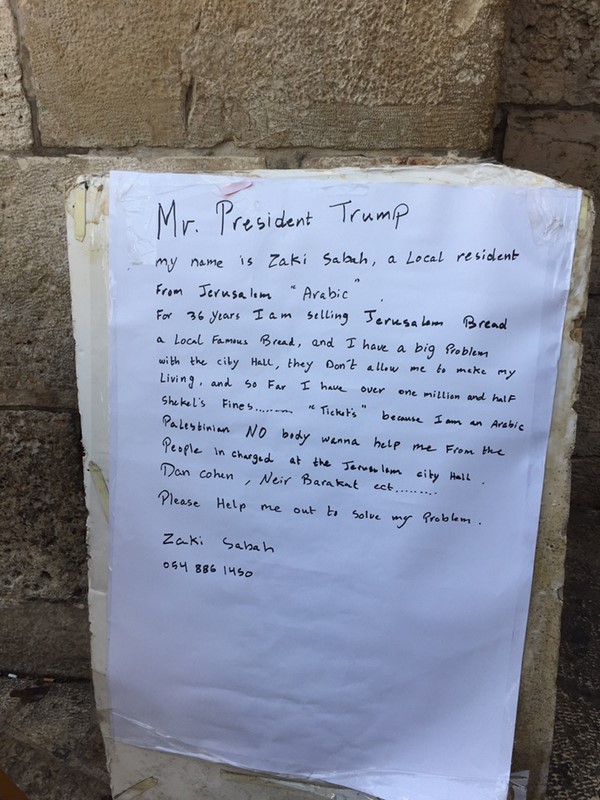 Mr. President Trump
my name is Zaki Sabah, a Local resident
From Jerusalem "Arabic".
For 36 years I am selling Jerusalem Bread
a Local Famous Bread, and I have a big Problem
with the city Hall, they Don't allow me to make my
Living, and so Far I have over one million and half
Shekel's Fines........ "Tickets" because I am an Arabic
Palestinian NO body wanna help me From the
People in charged at the Jerusalem city Hall.
Dan cohen, Neir Barakat ect.........
Please Help me out to solve my Problem.
Zaki Sabah
054 886 1450